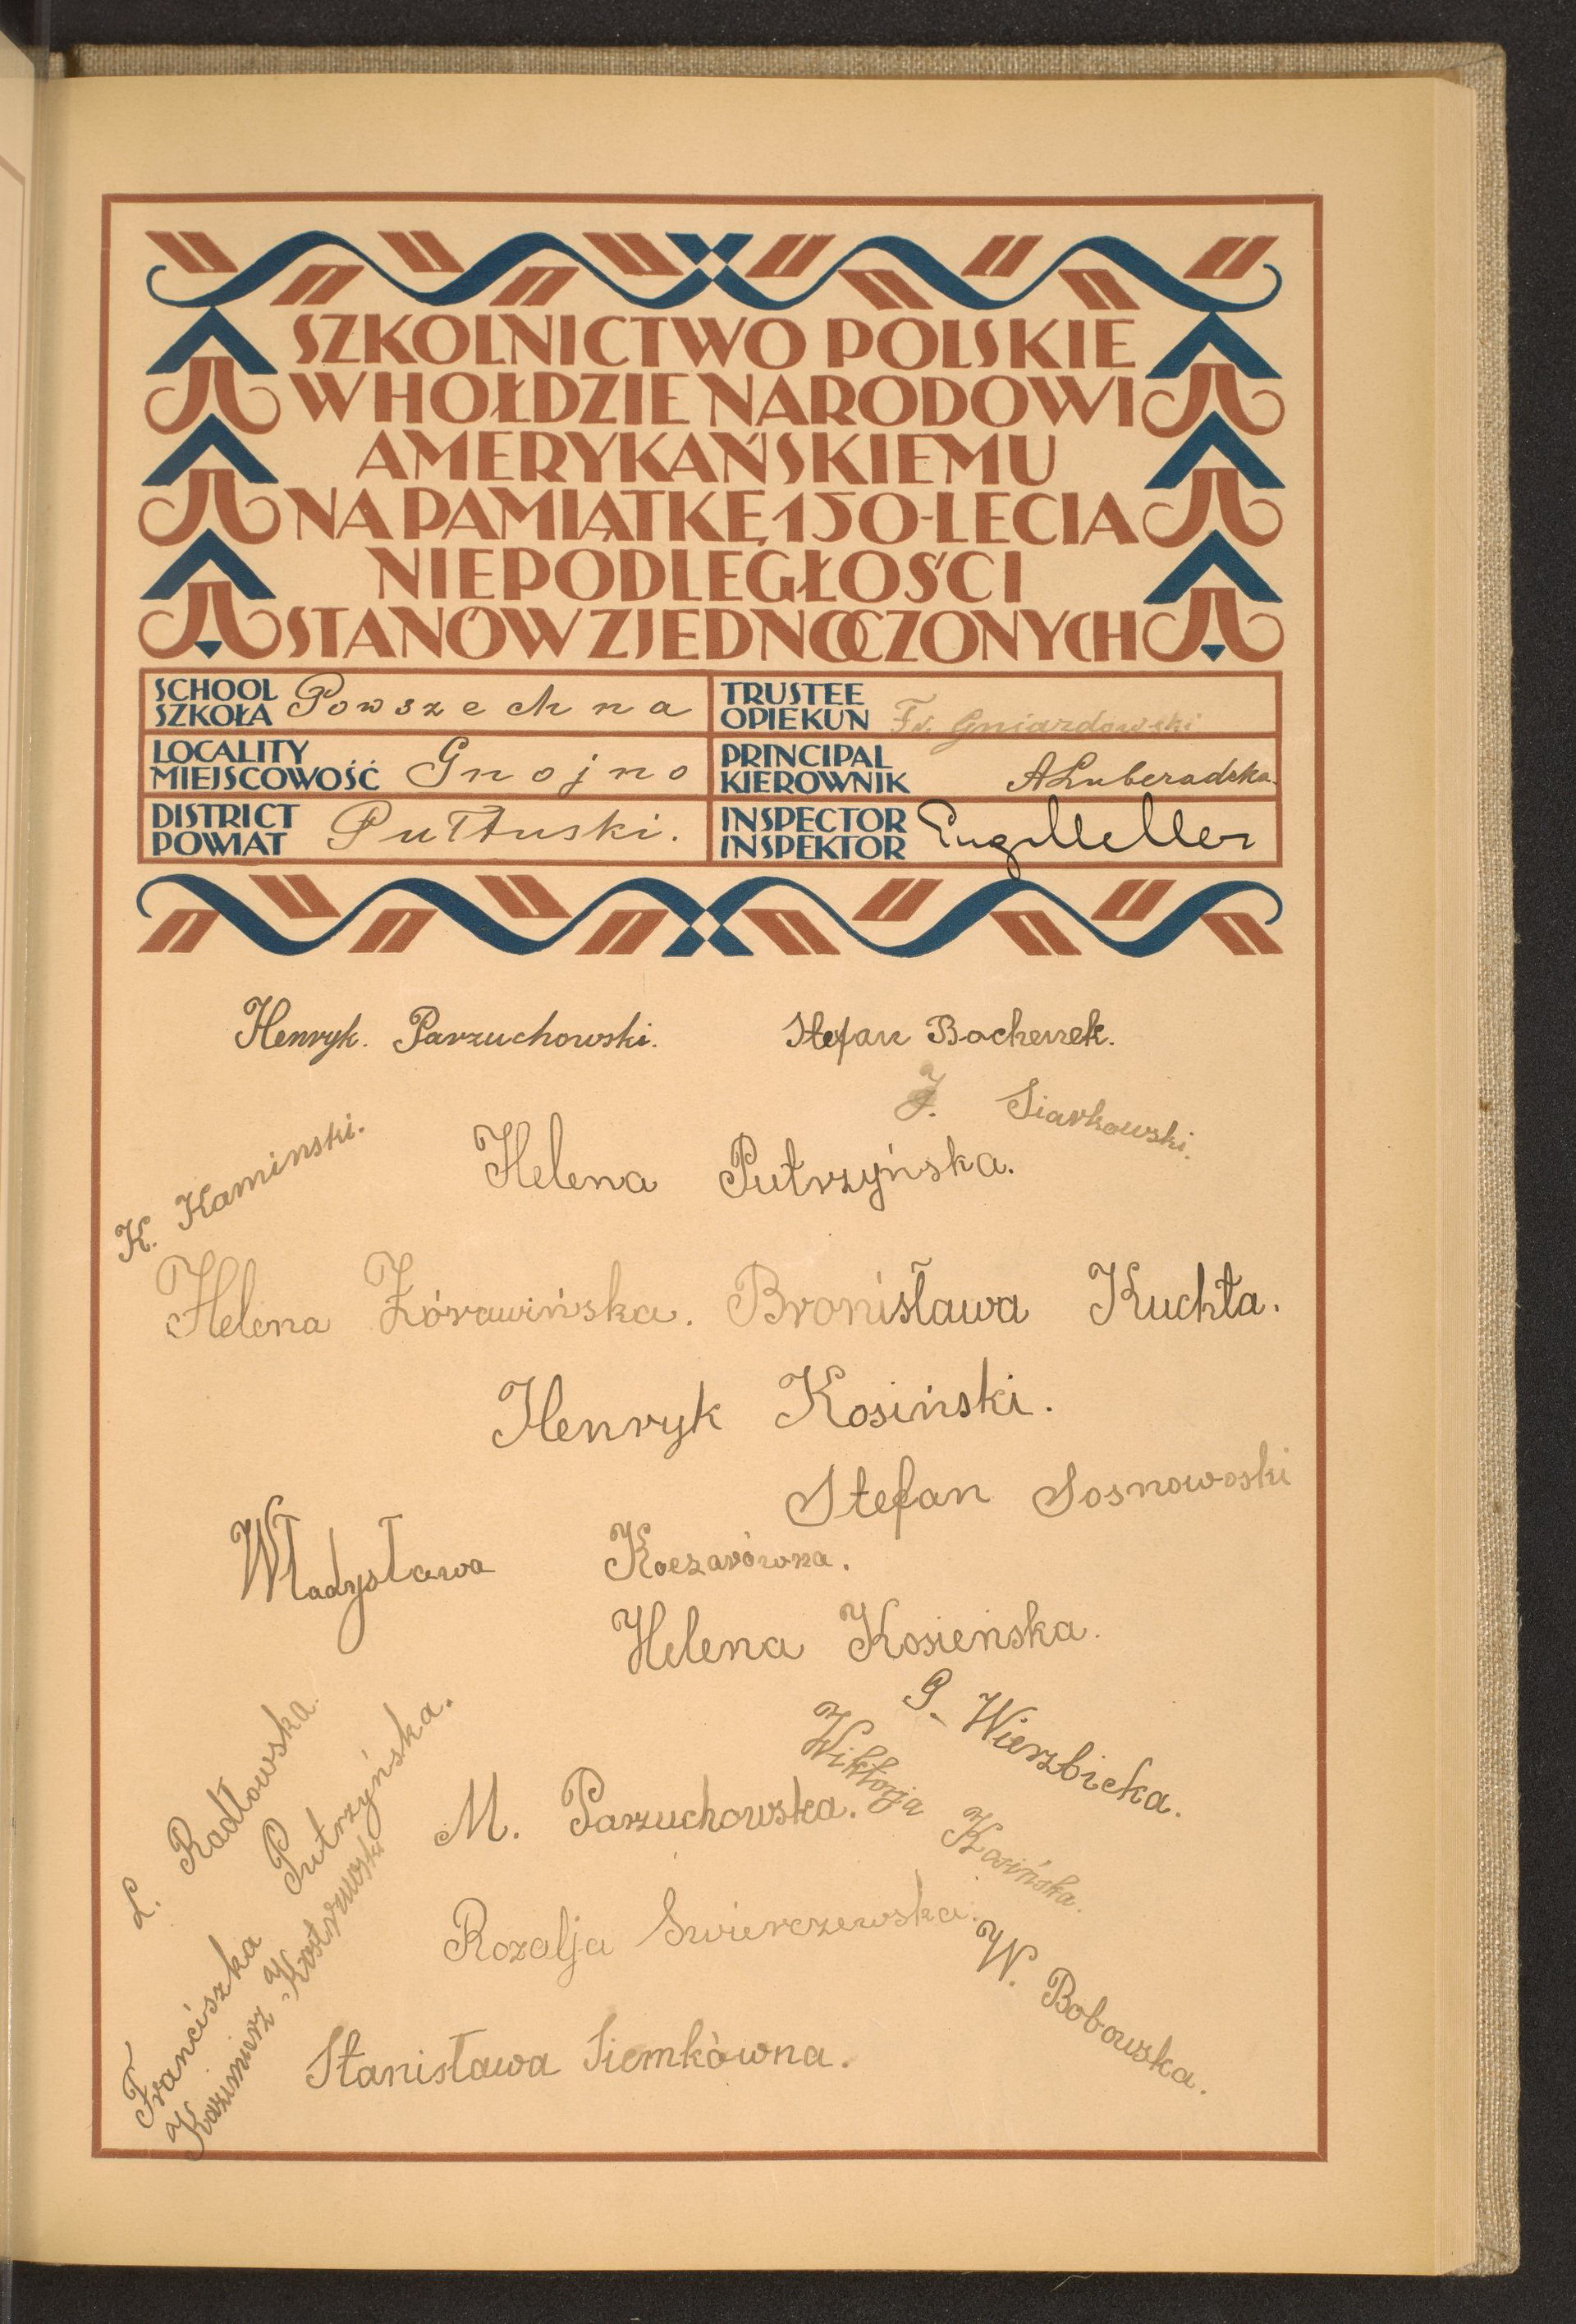 SZKOLNICTWO POLSKIE
W HOŁDZIE NARODOWI
AMERYKAŃSKIEMU
NA PAMIĄTKĘ 150-LECIA
NIEPODLEGŁOŚCI
STANÓW ZJEDNOCZONYCH
SCHOOL
SZKOŁA
Powszechna
TRUSTEE
OPIEKUN
Fr. Gniazdowski
LOCALITY
MIEJSCOWOŚĆ
Gnojno
PRINCIPAL
KIEROWNIK
A Luberadzka
DISTRICT
POWIAT
Pułtuski.
INSPECTOR
INSPEKTOR
Henryk. Parzuchowski.
Stefan Bochenek.
J. Siarkowski.
K. Kaminski.
Helena Putrzyńska.
Helena Żórawińska.
Bronisława Kuchta.
Henryk Kosiński.
Stefan Sosnowoski
Władysława
Helena Kosieńska.
P. Wierzbicka.
Wiktorja Kosińska.
L. Radłowska.
Franciszka Putrzyńska.
Kazimierz
M. Parzuchowska.
Rozalja Swierczewska.
W. Bobowska.
Stanisława Siemkówna.